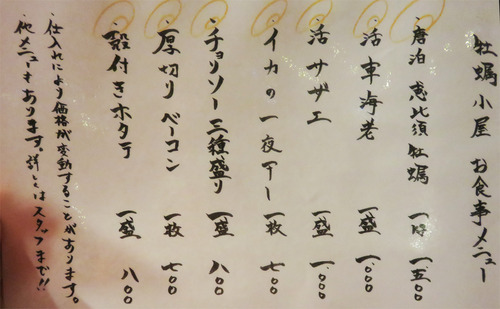 牡蠣小屋 お食事メニュー
・唐泊 恵比須牡蠣 一皿 一五〇〇
・活 車海老 一盛 一、〇〇〇
・活 サザエ 一盛 一、〇〇〇
・イカの一夜干し 一枚 七〇〇
・チョリソー三種盛り 一盛 八〇〇
・厚切りベーコン 一枚 七〇〇
・殻付きホタテ 一盛 八〇〇
・仕入れにより価格が変動することがあります。
・他メニューもあります。詳しくはスタッフまで!!